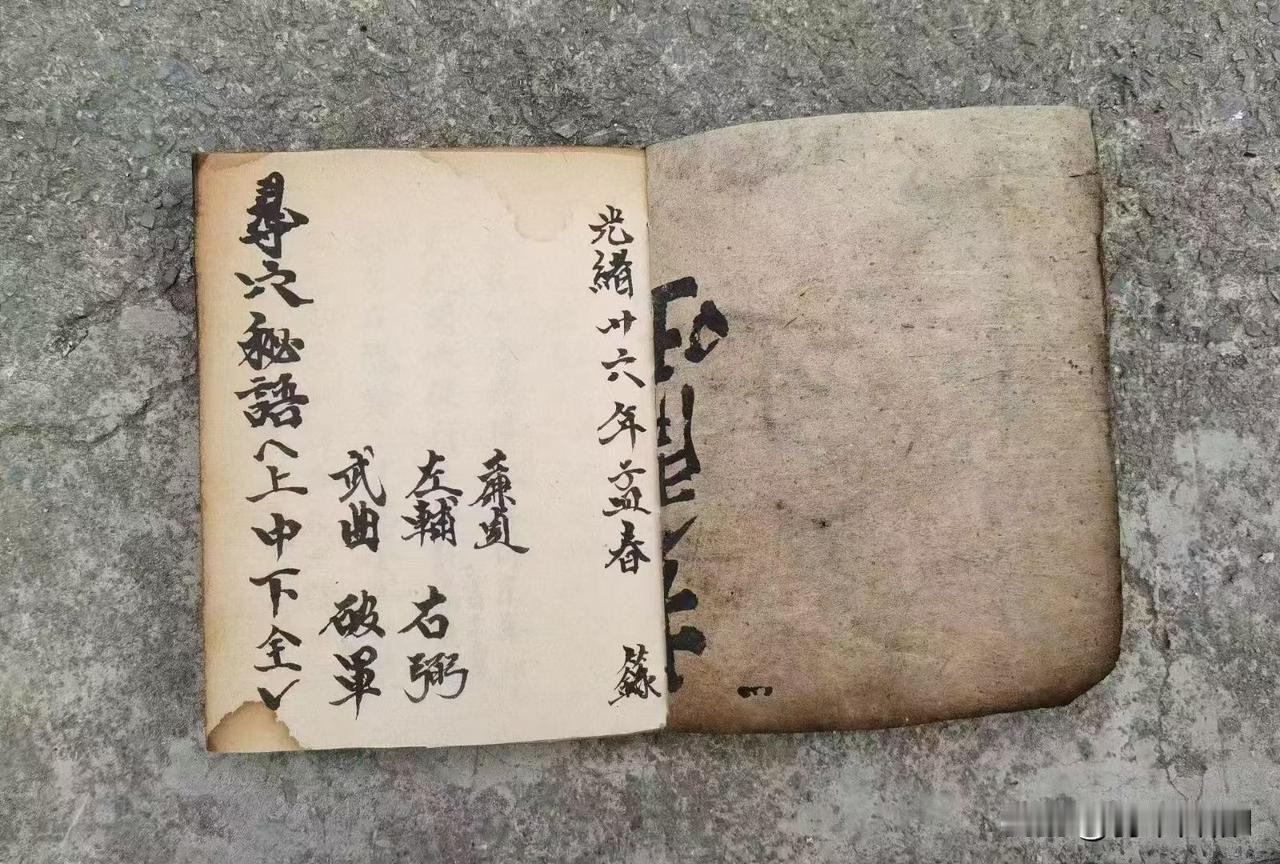 光緒廿六年孟春 籙
廉貞
左輔 右弼
武曲 破軍
尋穴秘語︿上中下全﹀